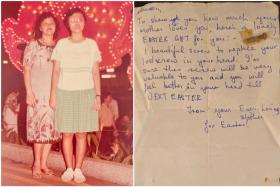 To show you how much your
mother loves you here's a lovely
EASTER GIFT for you :-
1 beautiful screw to replace your
lost screw in your head. I'm
sure this screw will be very
valuable to you and you will
feel better in your head till
NEXT EASTER
From your Ever loving
Mother
for Easter